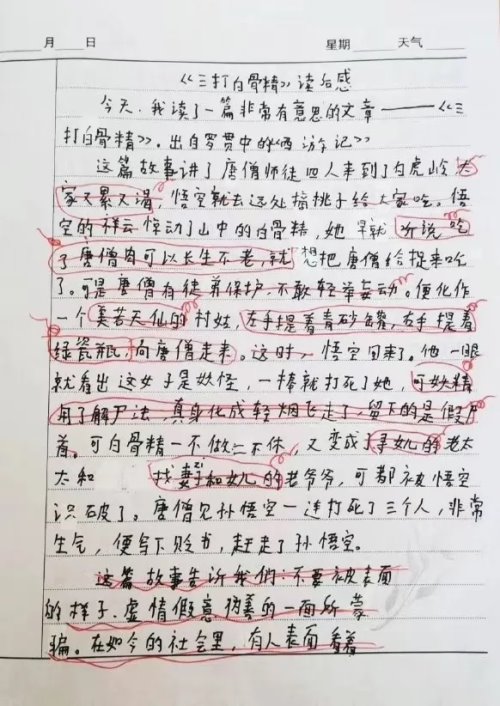 月 日 星期 天气
《三打白骨精》读后感
今天，我读了一篇非常有意思的文章——《三
打白骨精》。出自罗贯中的《西游记》
这篇故事讲了唐僧师徒四人来到了白虎岭，大
家又累又渴，悟空就去远处摘桃子给大家吃。悟
空的祥云惊动了山中的白骨精，她早就听说吃
了唐僧肉可以长生不老，就想把唐僧给捉来吃
了。可是唐僧有徒弟保护，不敢轻举妄动。便化作
一个美若天仙的村姑，左手提着青砂罐，右手提着
绿瓷瓶，向唐僧走来。这时，悟空回来了。他一眼
就看出这女子是妖怪，一棒就打死了她，可妖精
用了解尸法，真身化成轻烟飞走了，留下的是假尸
首。可白骨精一不做二不休，又变成了寻女儿的老太
太和 找妻子和女儿的老爷爷，可都被悟空
识破了。唐僧见孙悟空一连打死了三个人，非常
生气，便写下贬书，赶走了孙悟空。
这篇故事告诉我们：不要被表面
的样子、虚情假意伪善的一面所蒙
骗。在如今的社会里，有人表面看着